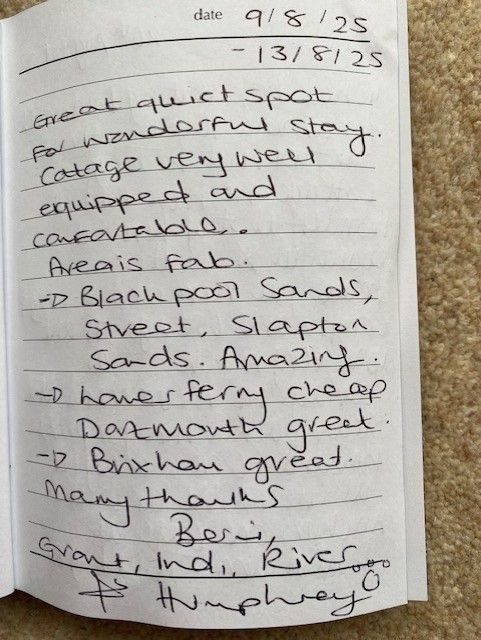 date 9/8/25
- 13/8/25
Great quiet spot
for wonderful stay.
Cotage very well
equipped and
comfortable.
Area is fab.
→ Blackpool Sands,
Street, Slapton
Sands. Amazing.
→ ferry cheap
Dartmouth great.
→ Brixham great.
Many thanks
Grant, Indi, River
& Humphrey